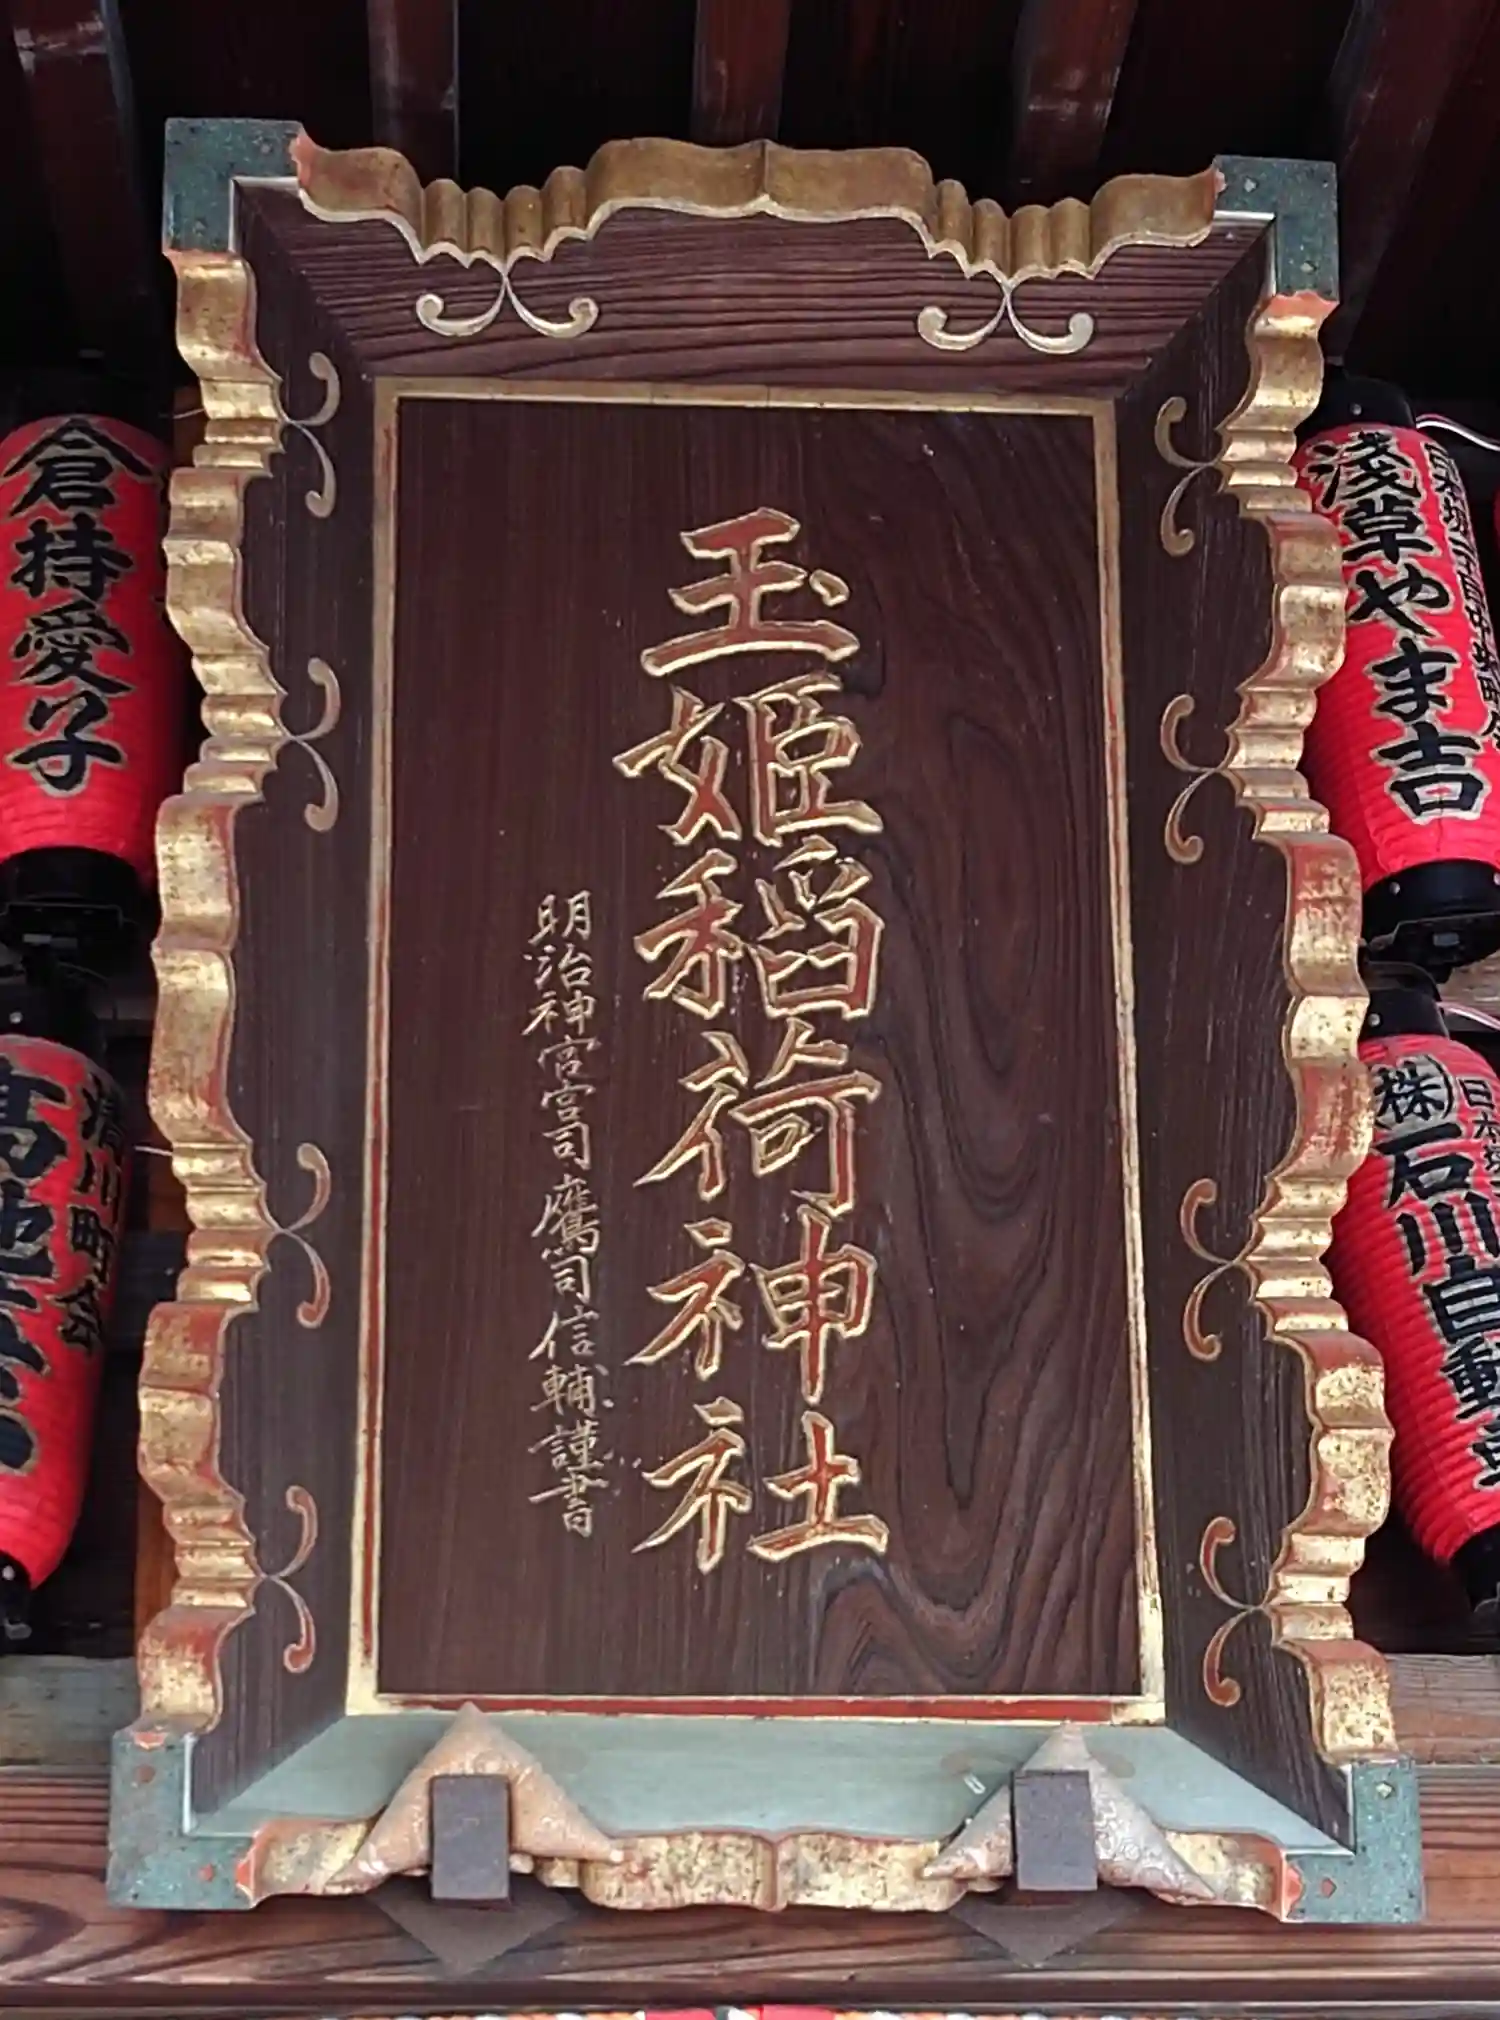 玉姫稲荷神社
明治神宮宮司鷹司信輔謹書
浅草やま吉
㈱石川自動車
倉持愛子
清川町会